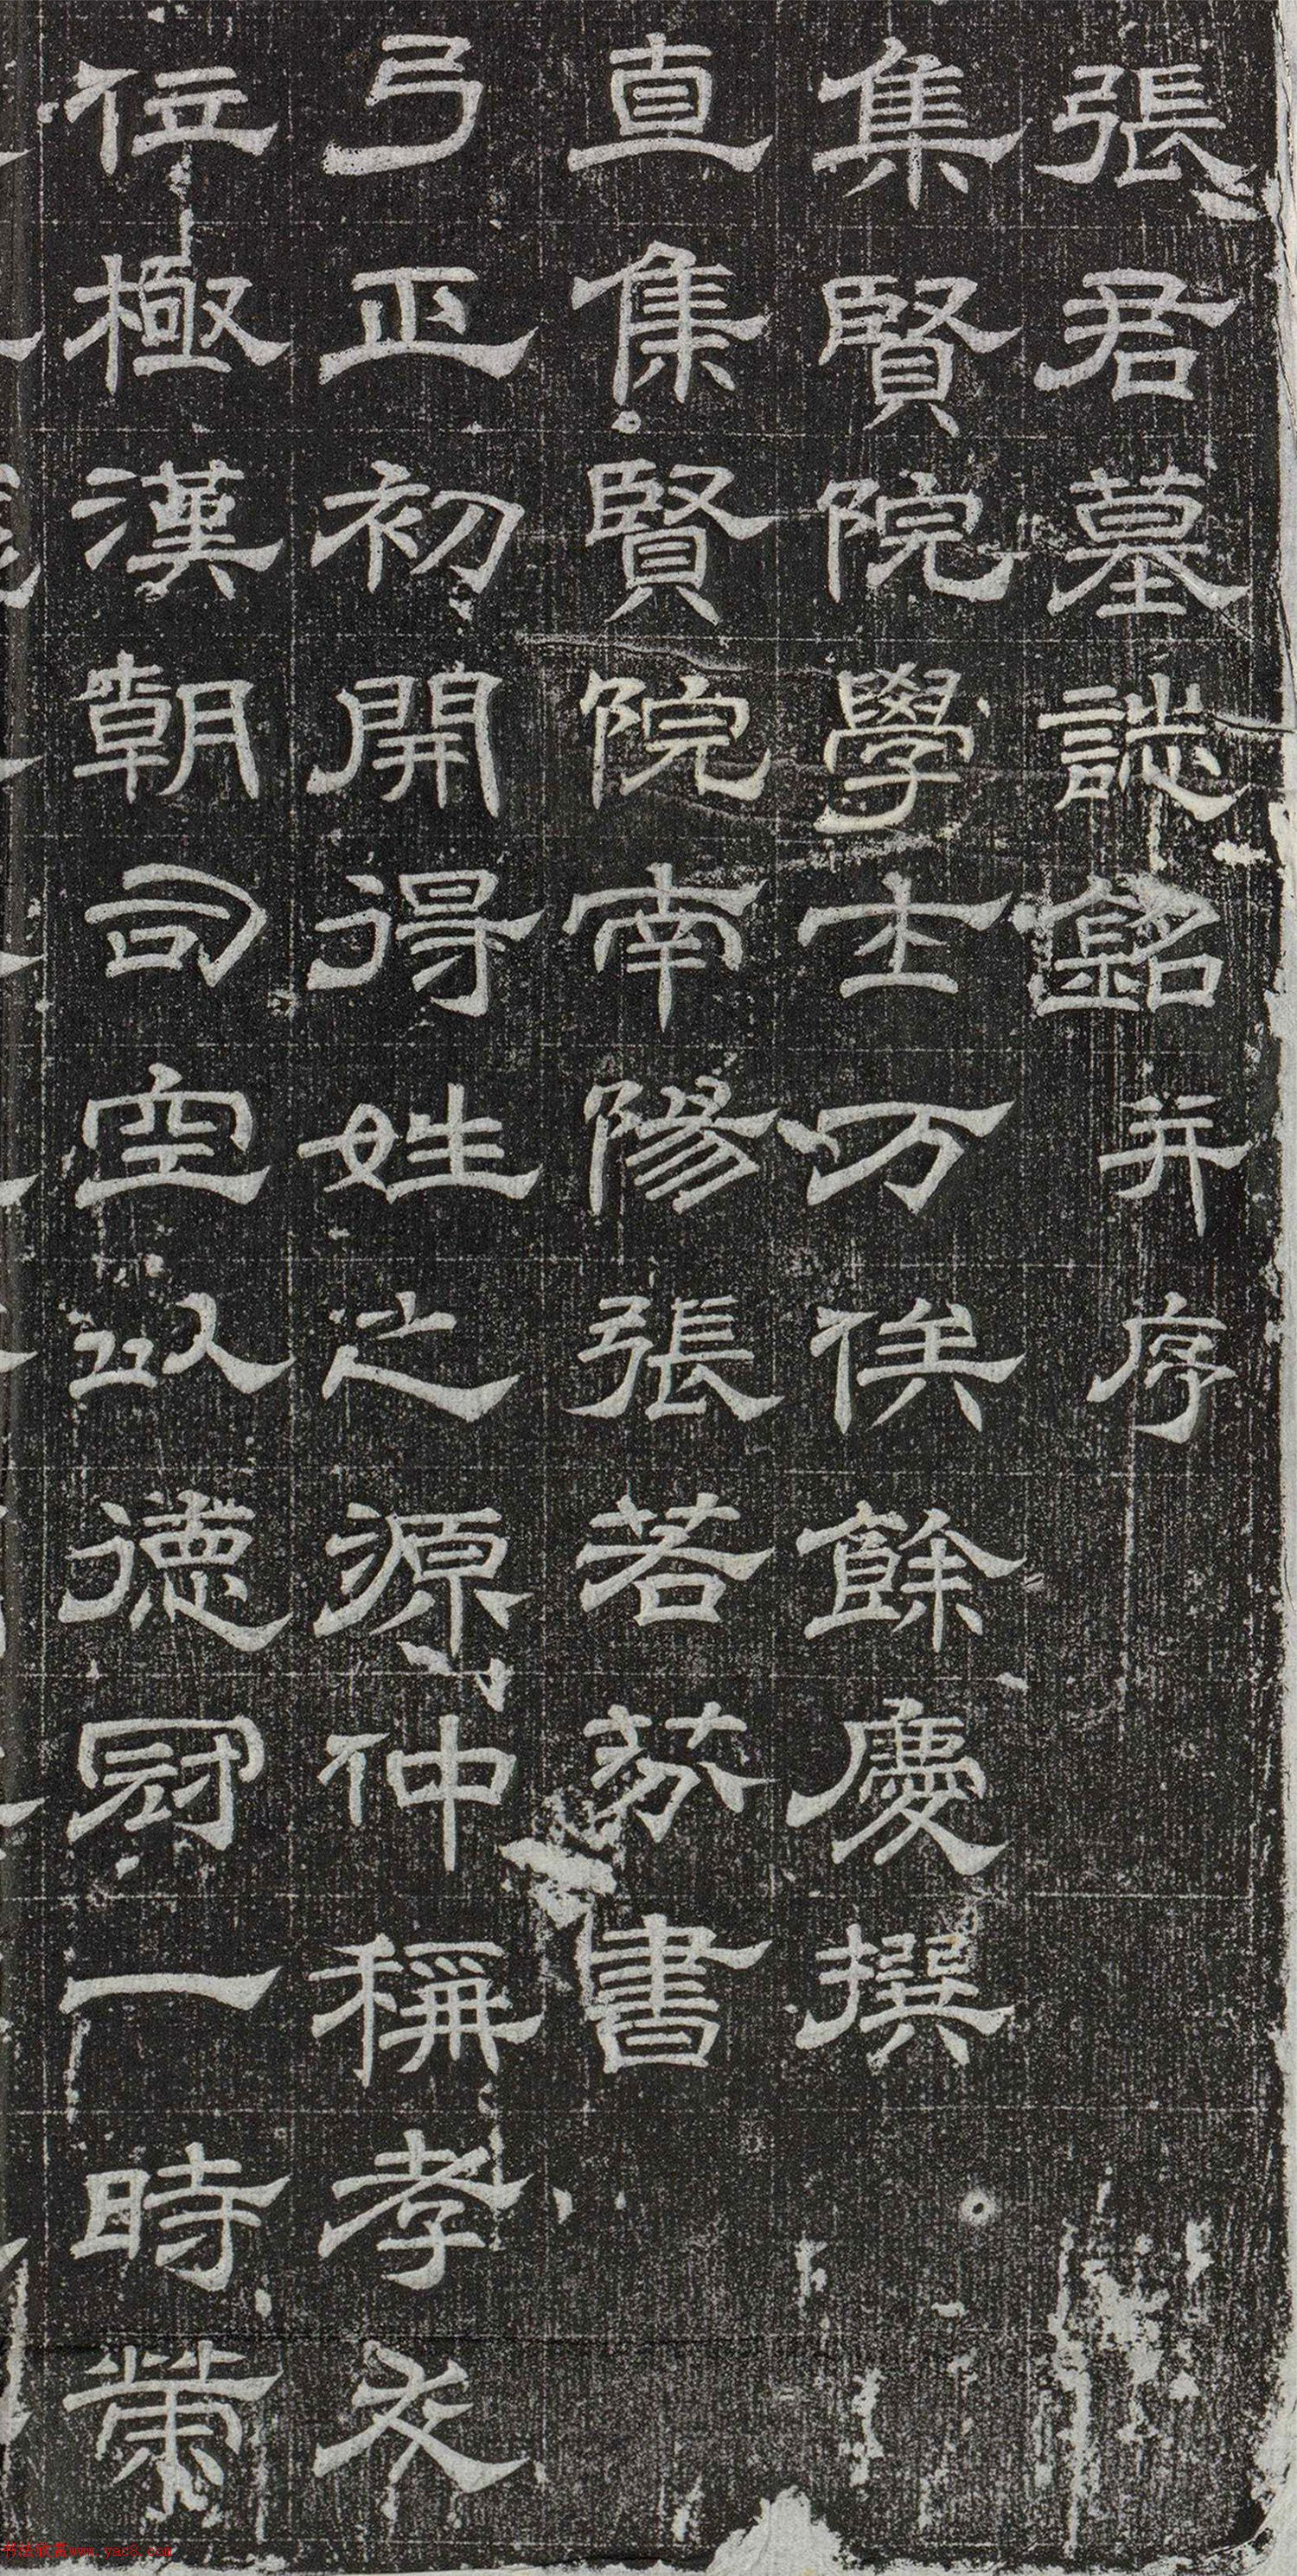 張君墓誌銘并序
集賢院學士万俟餘慶撰
直集賢院南陽張若芬書
弓正初開得姓之源仲稱孝友
位極漢朝司空以德冠一時榮
书法欣赏www.yac8.com